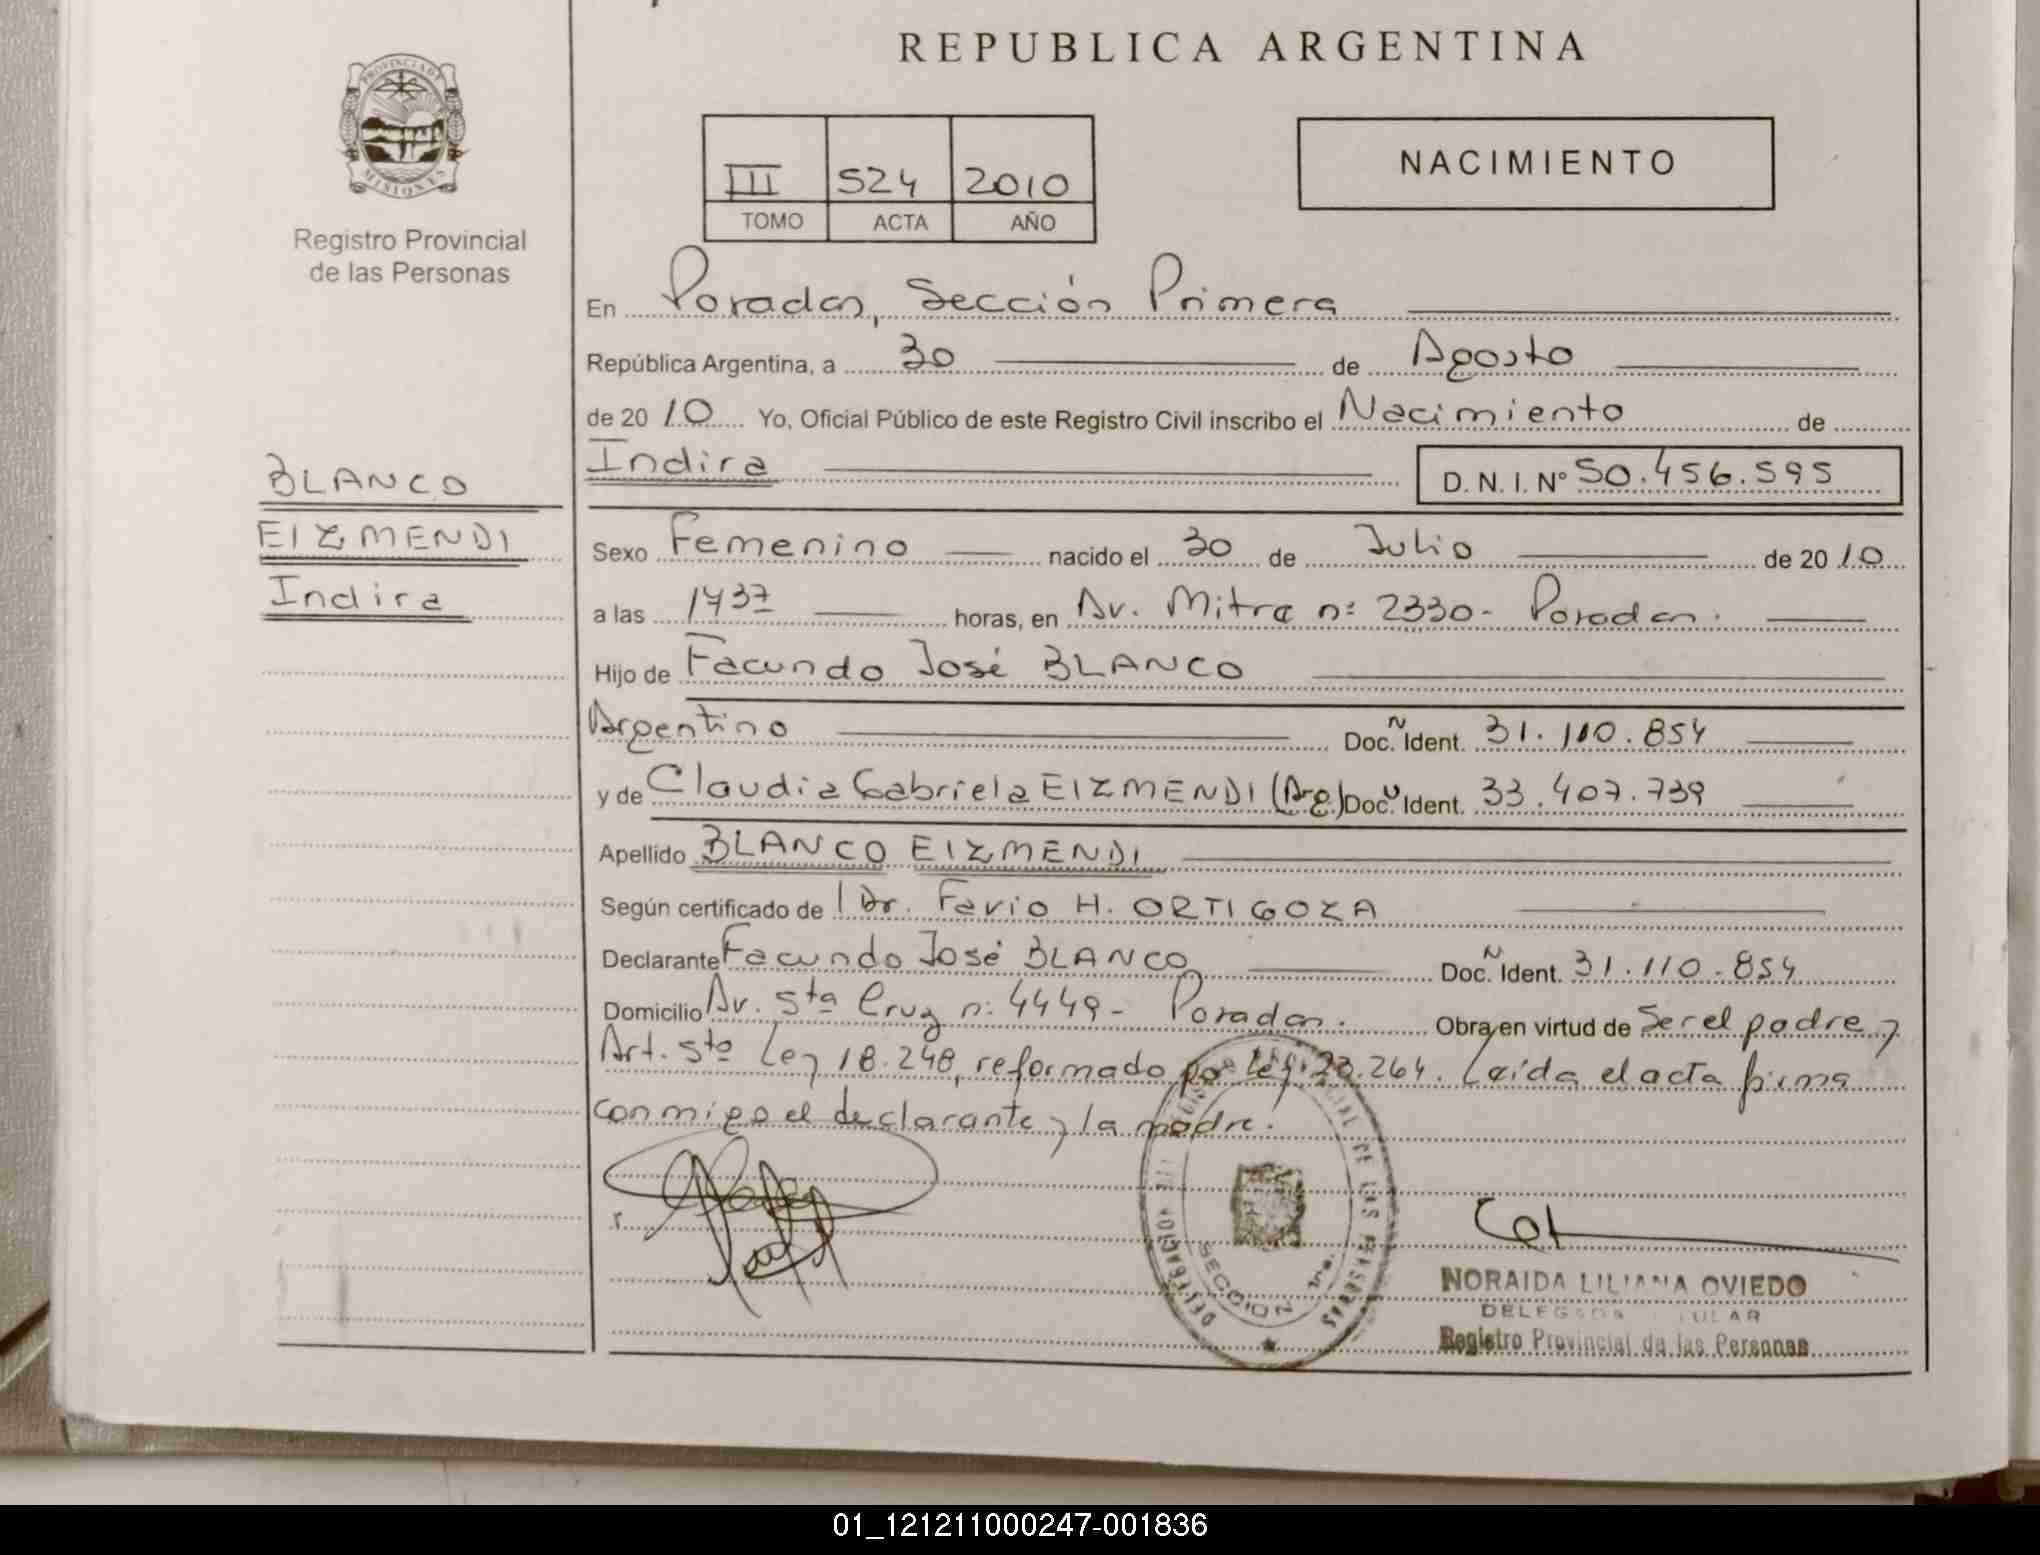 REPUBLICA ARGENTINA
PROVINCIA DE
MISIONES
Registro Provincial
de las Personas
III 524 2010
TOMO ACTA AÑO
NACIMIENTO
En Posadas, Sección Primera
República Argentina, a 30 de Agosto
de 2010 Yo, Oficial Público de este Registro Civil inscribo el Nacimiento de
Indira D. N. I. Nº 50.456.595
BLANCO
EIZMENDI
Indira
Sexo Femenino nacido el 30 de Julio de 2010
a las 1437 horas, en Av. Mitre nº 2330- Posadas.
Hijo de Facundo José BLANCO
Argentino Doc. N Ident. 31.110.854
y de Claudia Gabriela EIZMENDI (Arg.) Doc. Ident. 33.407.739
Apellido BLANCO EIZMENDI
Según certificado de Dr. Favio H. ORTIGOZA
Declarante Facundo José BLANCO Doc. N Ident. 31.110.854
Domicilio Av. Sta Cruz n: 4449- Posadas. Obra en virtud de Ser el padre y
Art. 5to Ley 18.248, reformado por Ley 23.264. Leída el acta firma
conmigo el declarante y la madre.
DELEGACION DE LAS PERSONAS
SECCION 1ra.
NORAIDA LILIANA OVIEDO
DELEGADA TITULAR
Registro Provincial de las Personas
01_121211000247-001836